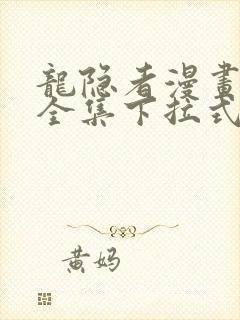 龍隐者漫畫
全集下拉式
黄妈